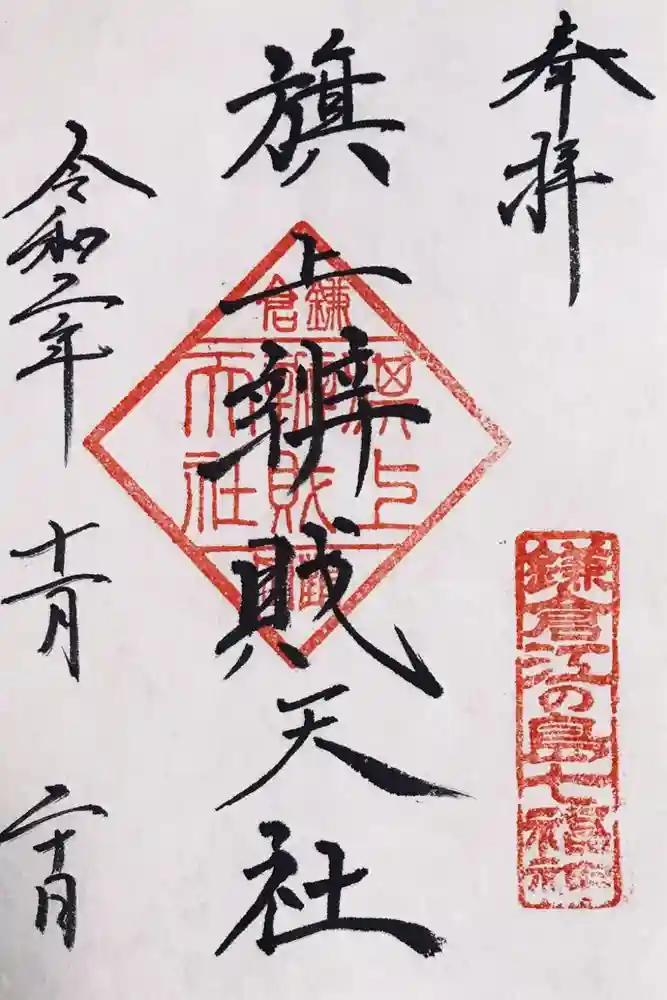 奉拝
鎌倉江の島七福神
旗上辨財天社
鎌倉
旗上
辨財
天社
令和二年 十一月 二十日